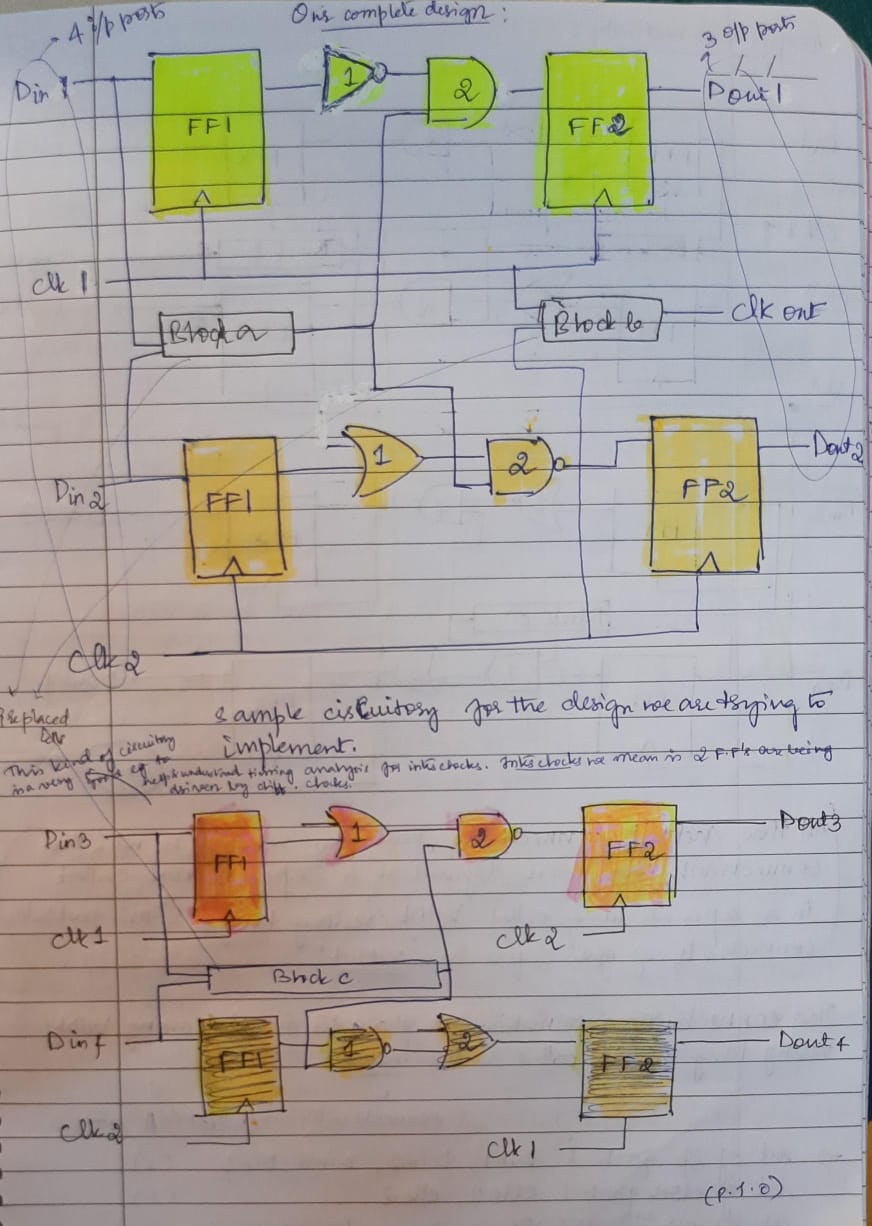 4 i/p ports
Our complete design :
3 o/p ports
Din 1
FF1
1
2
FF2
Dout 1
Clk 1
Block a
Block b
Clk out
Din 2
FF1
1
2
FF2
Dout 2
Clk 2
Replaced
sample circuitory for the design we are trying to
implement.
This kind of circuitory
is a very good eg to
help understand timing analysis for interclocks. Interclocks we mean is 2 F.F's are being
driven by diff. clocks.
Din 3
FF1
1
2
FF2
Dout 3
Clk 1
Clk 2
Block c
Din 4
FF1
1
2
FF2
Dout 4
Clk 2
Clk 1
(P.T.O)